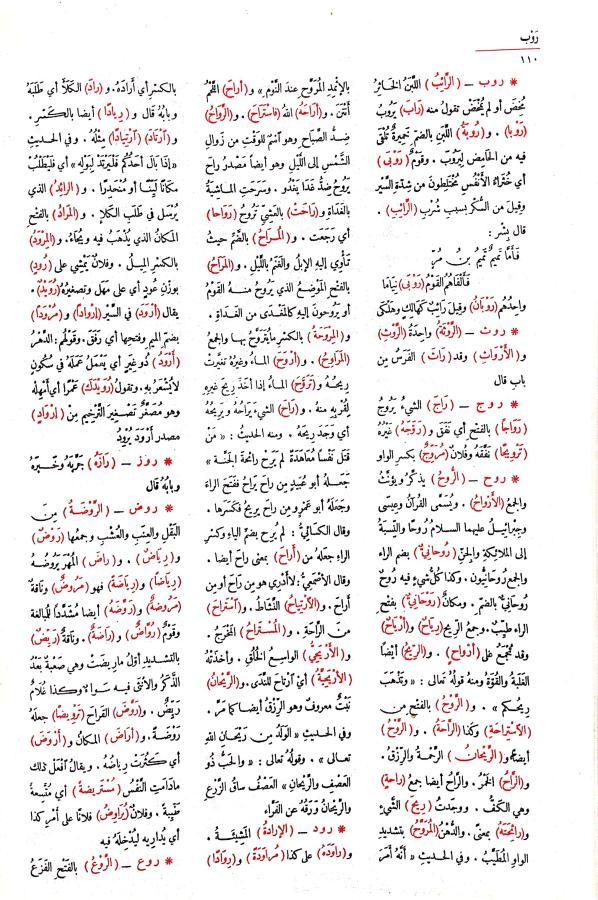 رَوْب
١١٠
* روب – (الرَّائِبُ) اللَّبَنُ الخَاثِرُ
مُخِضَ أو لم يُمْخَضْ تقولُ منه (رَابَ) يَرُوبُ
(رَوْبا) . و(رُوبَةُ) اللَّبَنِ بالضمّ خَمِيرَةٌ تُلْقَى
فيه من الحَامِض لِيَرُوبَ . وقومٌ (رَوْبَى)
أي خُثَرَاءُ الأَنْفُسِ مُخْتَلِطون من شِدَّةِ السَّيْر
وقيل من السُّكْرِ بسبب شُرْبِ (الرَّائِبِ) .
قال بِشْر :
فَأَمَّا تَمِيمٌ تَمِيمُ بنُ مُرٍّ
فَأَلْفَاهُمُ القَوْمُ (رَوْبَى) نِيَامَا
واحدُهم (رَوْبَانُ) وقيل رَائِبٌ كَهَالِكٍ وهَلْكَى
* روث – (الرَّوْثَةُ) واحدةُ (الرَّوْثِ)
و(الأَرْوَاثِ) وقد (رَاثَ) الفَرَسُ من
باب قال
* روج – (رَاجَ) الشيءُ يَرُوجُ
(رَوَاجًا) بالفتح أي نَفَقَ و(رَوَّجَهُ) غَيْرُهُ
(تَرْوِيجًا) نَفَّقَهُ وفُلانٌ (مُرَوِّجٌ) بكسر الواو
* روح – (الرُّوحُ) يذكّرُ ويؤنَّثُ
والجمعُ (الأَرْوَاحُ) . ويُسَمَّى القرآنُ وعِيسَى
وجِبْرَائِيلُ عليهما السلامُ رُوحًا والنِّسْبَةُ
إلى الملائِكَةِ والجِنِّ (رُوحَانِيٌّ) بضم الراء
والجمع رُوحَانِيُّون . وكذا كُلُّ شيءٍ فيه رُوحٌ
رُوحَانِيٌّ بالضمّ . ومكانٌ (رَوْحَانِيٌّ) بفتح
الراء طَيِّبٌ . وجمعُ الرِّيح (رِيَاحٌ) و(أَرْيَاحٌ)
وقد تُجْمَعُ على (أَرْوَاح) . و(الرِّيحُ) أيضًا
الغَلَبَةُ والقُوَّةُ ومنه قولُهُ تعالى : «وتَذْهَبَ
رِيحُكم» . و(الرَّوْحُ) بالفتح من
(الاسْتِرَاحَةِ) وكذا (الرَّاحَةُ) . و(الرَّوْحُ)
أيضًا و(الرَّيْحانُ) الرَّحْمَةُ والرِّزْقُ .
و(الرَّاحُ) الخَمْرُ . والرَّاحُ أيضا جمعُ (راحةٍ)
وهي الكَفُّ . ووجدتُ (رِيحَ) الشَّيءِ
و(رائِحَتَهُ) بمعنًى . والدُّهْنُ (المُرَوَّحُ) بتشديد
الواو المُطَيَّبُ . وفي الحديثِ «أَنَّهُ أَمَرَ
بالإِثْمِدِ المُرَوَّحِ عِنْدَ النَّوْمِ» و(أَرَاحَ) اللَّحْمُ
أَنْتَنَ . و(أَرَاحَهُ) اللهُ (فاسْتَرَاحَ) . و(الرَّوَاحُ)
ضِدُّ الصَّبَاحِ وهو اسْمٌ للوَقْتِ من زَوَالِ
الشَّمْسِ إلى اللَّيْلِ وهو أيضاً مَصْدَرُ رَاحَ
يَرُوحُ ضِدُّ غَدَا يَغْدُو . وسَرَحَتِ المَاشِيَةُ
بالغَدَاةِ و(رَاحَتْ) بالعَشِيِّ تَرُوحُ (رَوَاحا)
أي رَجَعَت . و(المُرَاحُ) بالضَّمِّ حيثُ
تَأْوِي إليه الإِبلُ والغَنَمُ باللَّيْلِ . و(المَرَاحُ)
بالفتح المَوْضِعُ الذي يَرُوحُ منهُ القَوْمُ
أو يَرُوحونَ إليه كالمَغْدَى من الغَدَاةِ .
و(المِرْوَحَةُ) بالكسر ما يُتَرَوَّحُ بها والجمعُ
(المَرَاوِحُ) . و(أَرْوَحَ) الماءُ وغيرُهُ تغيَّرَتْ
رِيحُهُ و(تَرَوَّحَ) المَاءُ إذا أَخَذَ رِيحَ غيرِهِ
لِقُرْبِهِ منهُ . و(رَاحَ) الشيءَ يَرَاحُهُ ويَرِيحُهُ
أي وَجَدَ رِيحَهُ . ومنه الحديثُ : «مَنْ
قَتَلَ نَفْسًا مُعَاهَدَةً لم يَرَحْ رائحةَ الجَنَّةِ»
جَعَلَهُ أبو عُبَيدٍ من رَاحَ يَرَاحُ ففَتَحَ الراءَ
وجَعَلَهُ أبو عَمْرٍو من راحَ يَرِيحُ فكَسَرَها .
وقال الكسائِيُّ : لم يُرِحْ بضمِّ الياءِ وكَسْرِ
الراءِ جعلَه من (أَراحَ) بمعنى راحَ أيضا .
وقال الأصْمَعِيُّ : لا أَدْرِي هو مِن رَاحَ أو مِن
أَرَاحَ . و(الارْتِيَاحُ) النَّشَاطُ . و(اسْتَراحَ)
منَ الرَّاحَةِ . و(المُسْتَرَاحُ) المَخْرَجُ .
و(الأَرْيَحِيُّ) الواسعُ الخُلُقِ . وأَخَذَتْهُ
(الأَرْيَحِيَّةُ) أي ارْتَاحَ للنَّدَى . و(الرَّيْحَانُ)
نَبْتٌ معروفٌ وهو الرِّزْقُ أيضًا كما مَرَّ .
وفي الحديثِ «الوَلَدُ مِن رَيْحَانِ اللهِ
تعالى» . وقولُهُ تعالى : «والحَبُّ ذُو
العَصْفِ والرَّيْحانِ» العَصْفُ ساقُ الزَّرْعِ
والرَّيْحانُ وَرَقُهُ عن الفَرَّاء
* رود – (الإِرادَةُ) المَشِيئَةُ .
و(راوَدَهُ) على كذا (مُراوَدَةً) و(رِوَادًا)
بالكسر أي أَرَادَهُ . و(رادَ) الكَلَأَ أي طَلَبَهُ
وبابُهُ قال و(رِيادًا) أيضا بالكَسْرِ .
و(ارْتَادَ) (ارْتِيادًا) مِثْلُهُ . وفي الحديثِ
«إذا بَالَ أحَدُكُم فَلْيَرْتَدْ لِبَوْلِه» أي فَلْيَطْلُبْ
مكانًا لَيِّنًا أو مُنْحَدِرًا . و(الرائدُ) الذي
يُرْسَل في طَلَبِ الكَلَإِ . و(المَرَادُ) بالفتح
المكانُ الذي يُذْهَبُ فيه ويُجَاءُ . و(المِرْوَدُ)
بالكسرِ المِيلُ . وفلانٌ يَمْشِي على (رُودٍ)
بوزن عُودٍ أي على مَهَلٍ وتصغيرُهُ (رُوَيْدٌ) .
يقال (أَرْوَدَ) في السَّيْرِ (إِرْوادًا) و(مُرْوَدًا)
بضم الميم وفتحِها أي رَفَقَ . وقولُهم : الدَّهْرُ
(أَرْوَدُ) ذو غِيَرٍ أي يَعْمَلُ عَمَلَهُ في سُكُونٍ
لا يُشْعَرُ بهِ . وتقولُ (رُوَيْدَكَ) عَمْرًا أي أَمْهِلْهُ
وهو مُصَغَّرٌ تَصْغِيرَ التَّرْخِيم من (إِرْوَادٍ)
مصدر أَرْوَدَ يُرْوِدُ
* روز – (رَازَهُ) جَرَّبَهُ وخَبَرَهُ
وبابُهُ قال
* روض – (الرَّوْضَةُ) مِنَ
البَقْلِ والعِنَبِ والعُشْبِ وجمعُها (رَوْضٌ)
و(رِيَاضٌ) . و(راضَ) المُهْرَ يَرُوضُهُ
(رِيَاضًا) و(رِيَاضَةً) فهو (مَرُوضٌ) ونَاقَةٌ
(مَرُوضَةٌ) و(رَوَّضَهُ) أيضا مُشَدَّدًا للمُبالغة
وقَوْمٌ (رُوَّاضٌ) و(رَاضَةٌ) . ونَاقَةٌ (رَيِّضٌ)
بالتشديد أوّلُ ما رِيضَتْ وهي صَعْبَةٌ بَعْدُ
الذَّكَرُ والأنثى فيه سَواءٌ وكذا غُلَامٌ
رَيِّضٌ . و(رَوَّضَ) القَرَاحَ (تَرْوِيضًا) جعلَهُ
رَوْضَةً . و(أَرَاضَ) المكانُ و(أَرْوَضَ)
أي كَثُرَتْ رِيَاضُهُ . ويقالُ افْعَلْ ذلك
مادَامَتِ النَّفْسُ (مُسْتَرِيضَةً) أي مُتَّسِعةً
طَيِّبَةً . وفلانٌ (يُرَاوِضُ) فلانًا على أَمْرِ كذا
أي يُدَارِيهِ ليُدْخِلَهُ فيه
* روع – (الرَّوْعُ) بالفَتْحِ الفَزَعُ